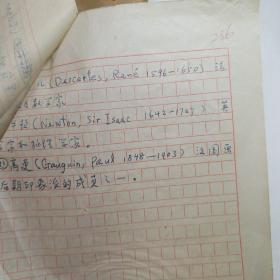 256
儿(Descartes, René 1596—1650) 法
学家
(Newton, Sir Isaac 1642—1727) 英
学家和物理学家。
高更(Gauguin, Paul 1848—1903) 法国画
后期印象派的成员之一。